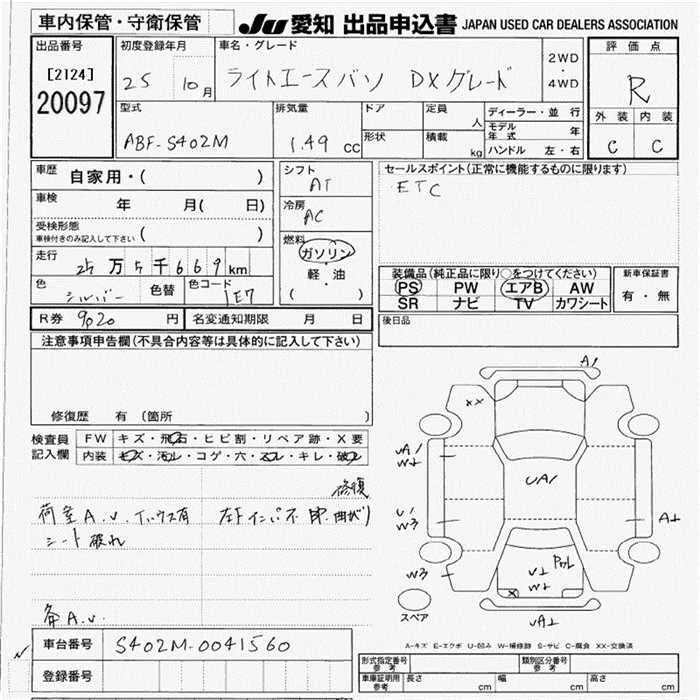 車内保管・守衛保管 JU 愛知 出品申込書 JAPAN USED CAR DEALERS ASSOCIATION
出品番号
[2124]
20097
初度登録年月
25 10月
車名・グレード
ライトエースバン DXグレード
2WD
・
4WD
評価点
R
外装 内装
C C
型式
ABF-S402M
排気量
1.49 cc
ドア
形状
定員 人
積載 kg
ディーラー・並行
モデル年式 年
ハンドル 左・右
車歴 自家用・( )
車検 年 月( 日)
受検形態
車検付きのみ記入して下さい ( )
走行 25万5千669km
色 シルバー 色替 色コード 1E7
シフト
AT
冷房
AC
燃料
ガソリン
・
軽・油
( )
セールスポイント(正常に機能するものに限ります)
ETC
装備品(純正品に限り○をつけてください)
PS PW エアB AW
SR ナビ TV カワシート
新車保証書
有・無
R券 9020 円 名変通知期限 月 日
後日品
注意事項申告欄(不具合内容等は具体的に記入して下さい)
修復歴 有 (箇所 )
検査員記入欄
FW キズ・飛石・ヒビ割・リペア跡・X要
内装 キズ・汚レ・コゲ・穴・スレ・キレ・破レ
修復
荷室A.U. 有 左
シート破れ
A.U.
A1
XX
UA1
W2
UA1
U1
W3
A2
W3
U2
W2
X
UA2
スペア
A-キズ E-エクボ U-凹み W-補修跡 S-サビ C-腐食 XX-交換済
車台番号 S402M-0041560
登録番号
形式指定番号 参考 類別区分番号 参考
車庫証明用 参考 長さ cm 幅 cm 高さ cm